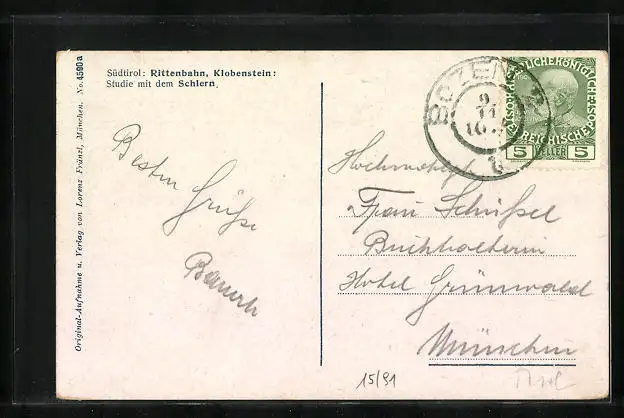 Südtirol: Rittenbahn, Klobenstein:
Studie mit dem Schlern.
Original-Aufnahme u. Verlag von Lorenz Fränzl, München. No. 4590a
Besten
Grüße
BOZEN
9
11
10
5 HELLER 5
Frau Schüßel
Buchhalterin
Hotel Grünwald
München
15/91